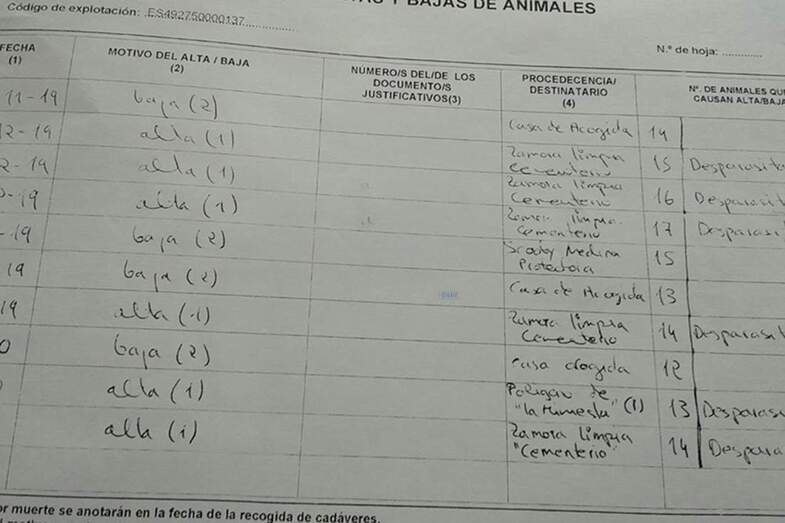 Y BAJAS DE ANIMALES
Código de explotación: ES492750000137
N.º de hoja: ............
FECHA
(1)
MOTIVO DEL ALTA / BAJA
(2)
NÚMERO/S DEL/DE LOS
DOCUMENTO/S
JUSTIFICATIVOS(3)
PROCEDECENCIA/
DESTINATARIO
(4)
Nº. DE ANIMALES QU
CAUSAN ALTA/BAJA
11-19 baja (2) Casa de Acogida 14
2-19 alta (1) Zamora limpia
cementerio 15 Desparasita
2-19 alta (1) Zamora limpia
Cementerio 16 Desparasit
-19 alta (1) Zamora limpia
Cementerio 17 Desparasi
-19 baja (2) Medina
Protectora 15
19 baja (2) Casa de Acogida 13
19 alta (1) Zamora limpia
Cementerio 14 Desparasit
0 baja (2) casa acogida 12
alta (1) de
"la (1) 13 Desparasi
alta (1) Zamora Limpia
"Cementerio" 14 Despara
or muerte se anotarán en la fecha de la recogida de cadáveres.